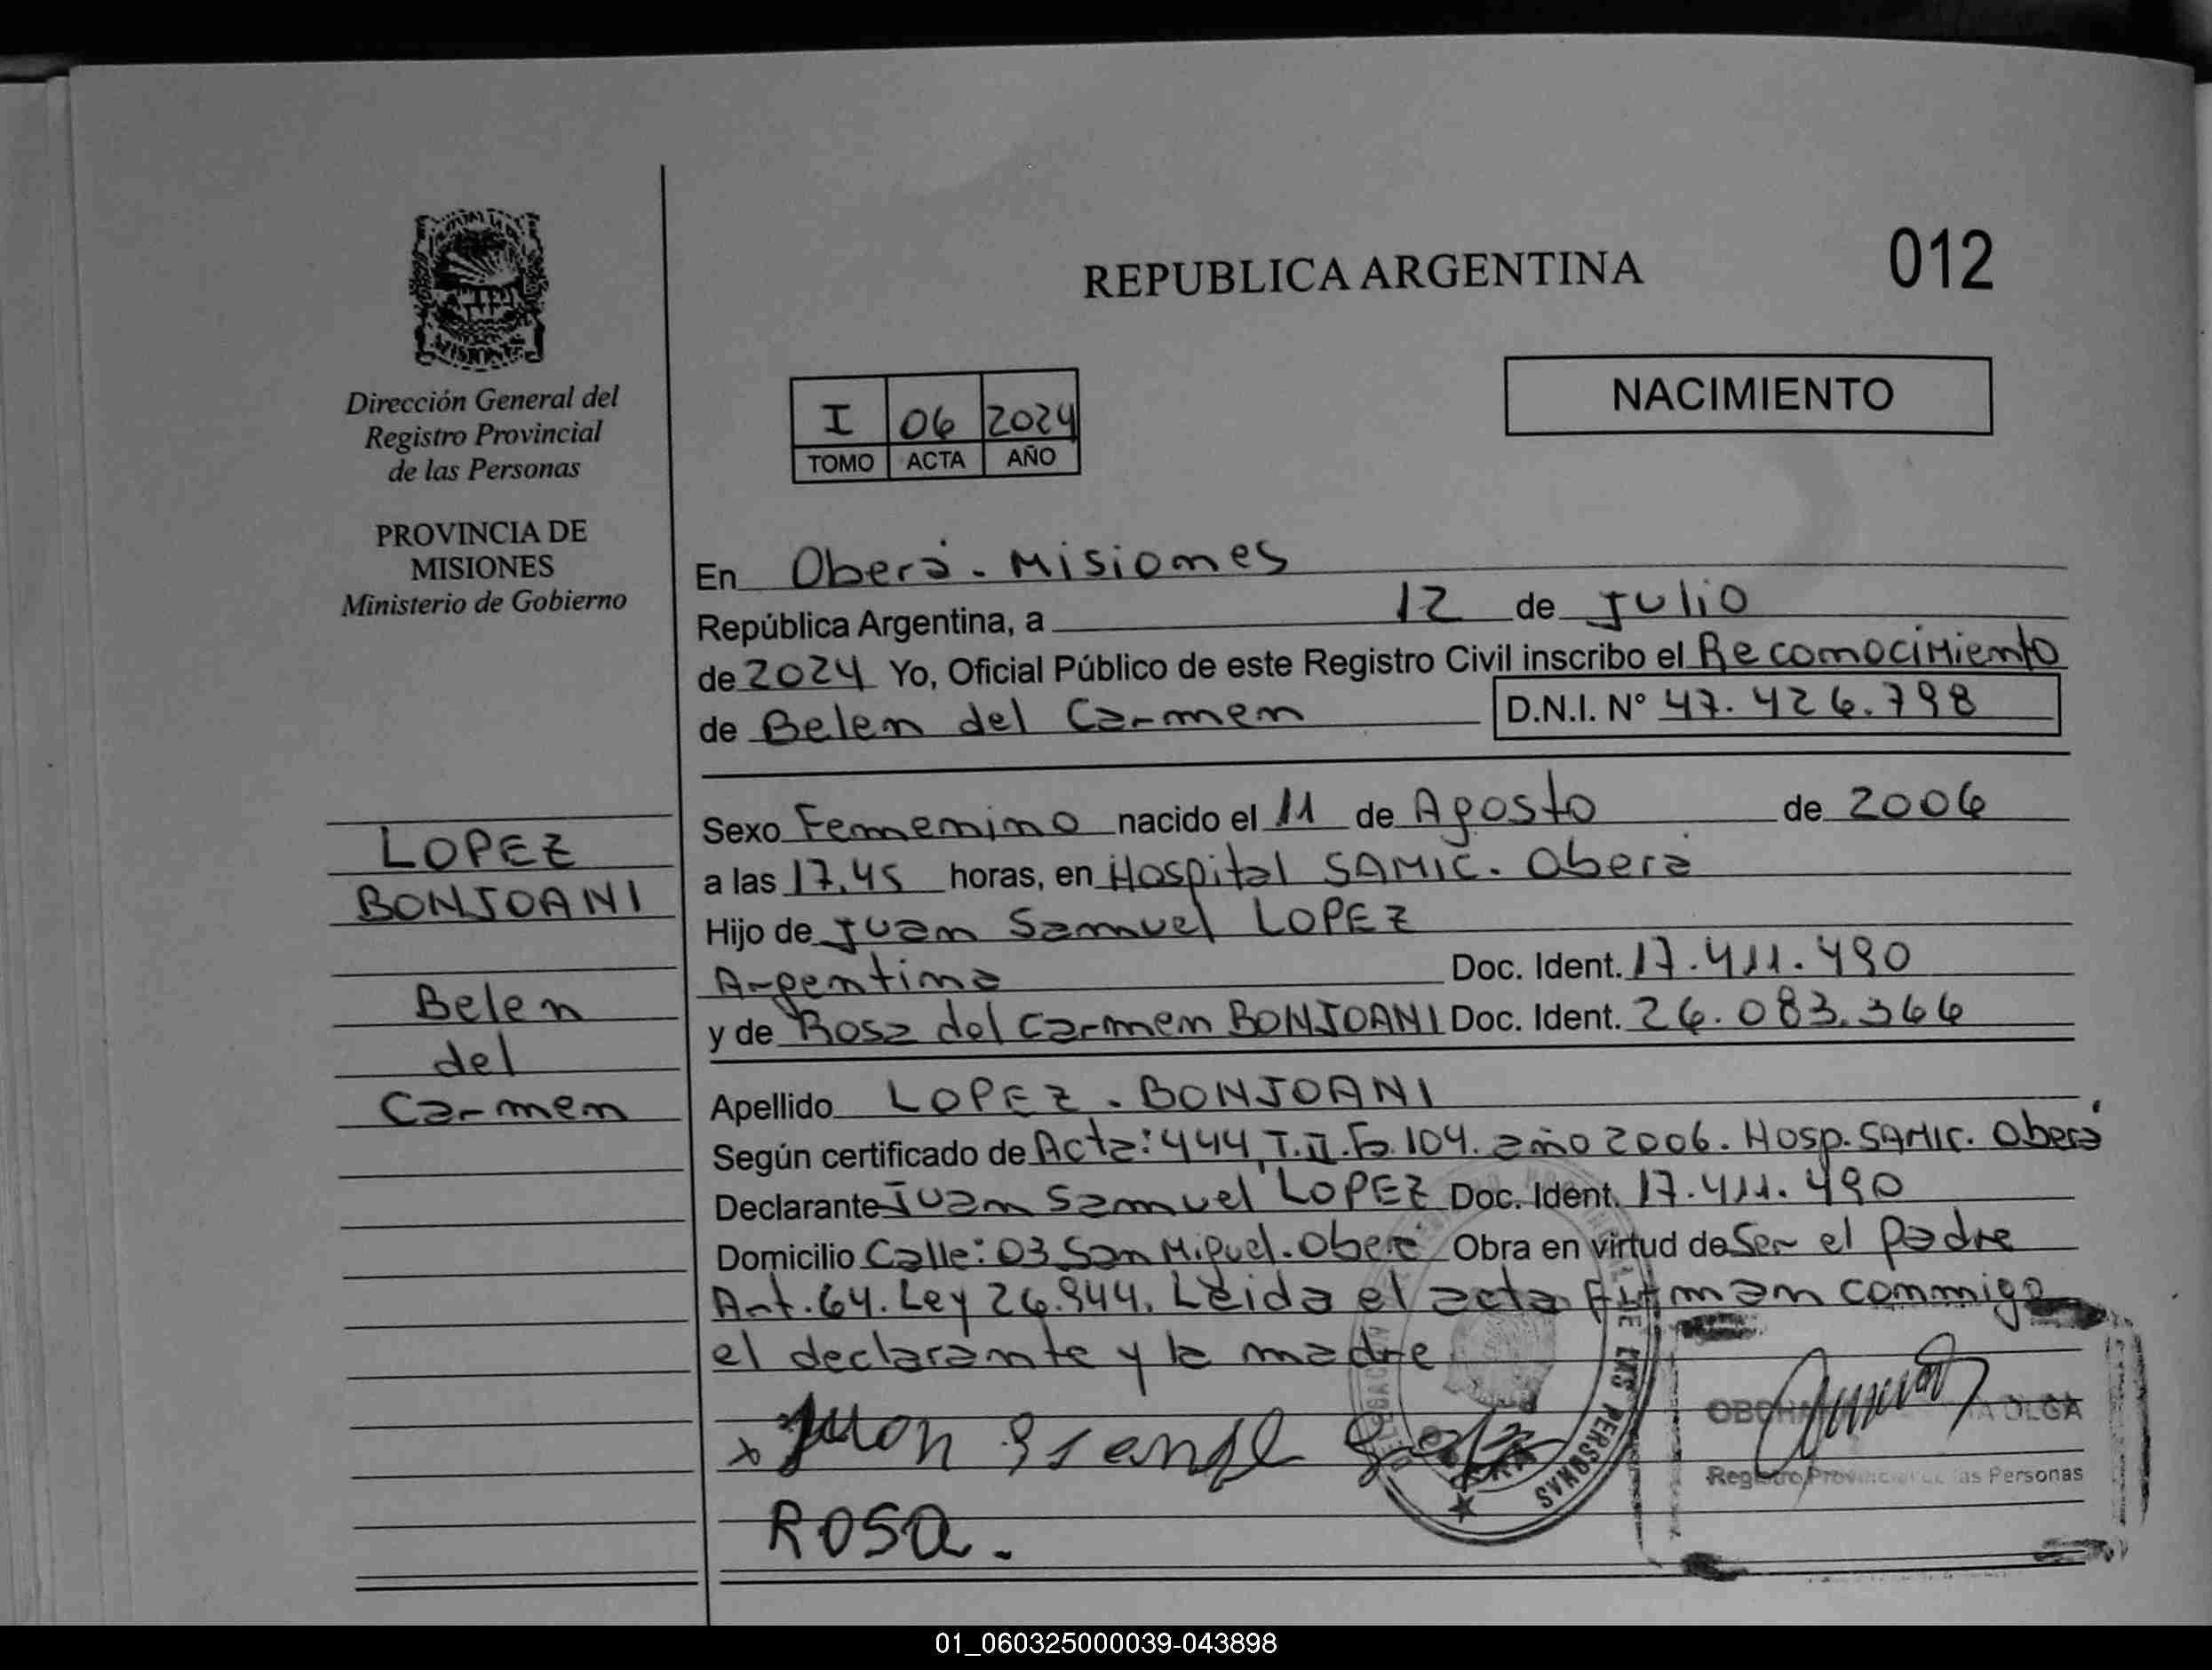 REPUBLICA ARGENTINA
012
NACIMIENTO
MISIONES
Dirección General del
Registro Provincial
de las Personas
PROVINCIA DE
MISIONES
Ministerio de Gobierno
I 06 2024
TOMO ACTA AÑO
En Oberá - Misiones
República Argentina, a 12 de Julio
de 2024 Yo, Oficial Público de este Registro Civil inscribo el Reconocimiento
de Belen del Carmen D.N.I. N° 47.426.798
LOPEZ
BONJOANI
Belen
del
Carmen
Sexo Femenino nacido el 11 de Agosto de 2006
a las 17,45 horas, en Hospital SAMIC. Oberá
Hijo de Juan Samuel LOPEZ
Argentina Doc. Ident. 17.411.490
y de Rosa del Carmen BONJOANI Doc. Ident. 26.083.366
Apellido LOPEZ - BONJOANI
Según certificado de Acta: 444, T. II. Fo. 104. año 2006. Hosp. SAMIC. Oberá
Declarante Juan Samuel LOPEZ Doc. Ident. 17.411.490
Domicilio Calle: 03 San Miguel. Oberá Obra en virtud de Ser el padre
Art. 64. Ley 26.944. Leida el acta firman conmigo
el declarante y la madre
x Juan
ROSA.
OLGA
Registro Provincial de las Personas
LAS PERSONAS
01_060325000039-043898